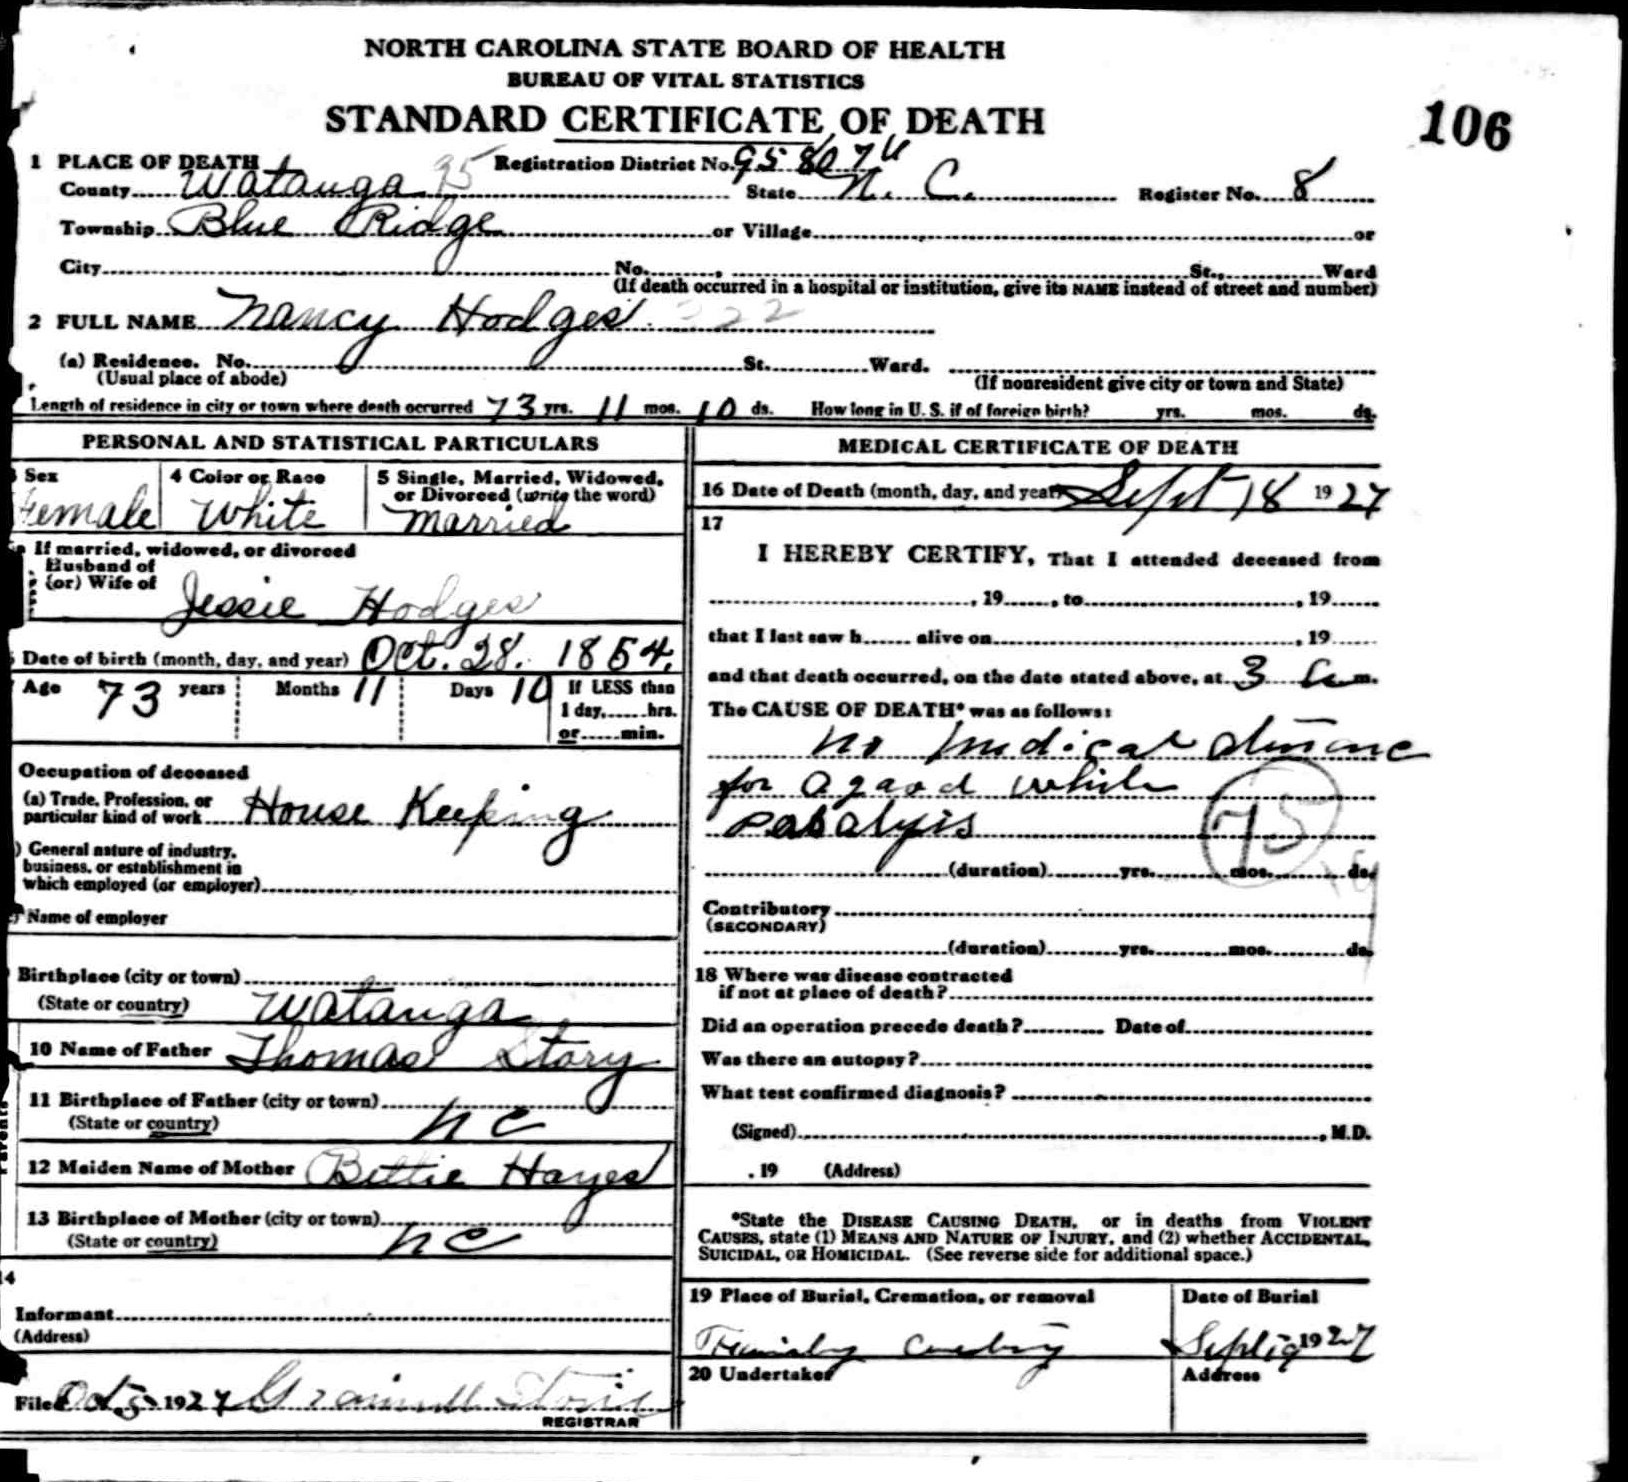 NORTH CAROLINA STATE BOARD OF HEALTH
BUREAU OF VITAL STATISTICS
STANDARD CERTIFICATE OF DEATH
106
1 PLACE OF DEATH Registration District No. 95 8074
County Watauga 95 State N. C. Register No. 8
Township Blue Ridge or Village or
City No. , St., Ward
(If death occurred in a hospital or institution, give its NAME instead of street and number)
2 FULL NAME Nancy Hodges 222
(a) Residence. No. St. Ward.
(Usual place of abode) (If nonresident give city or town and State)
Length of residence in city or town where death occurred 73 yrs. 11 mos. 10 ds. How long in U. S. if of foreign birth? yrs. mos. ds.
PERSONAL AND STATISTICAL PARTICULARS
Sex
Female
4 Color or Race
White
5 Single, Married, Widowed,
or Divorced (write the word)
Married
If married, widowed, or divorced
Husband of
(or) Wife of
Jessie Hodges
Date of birth (month, day, and year) Oct. 28. 1854.
Age 73 years Months 11 Days 10 If LESS than
1 day, hrs.
or min.
Occupation of deceased
(a) Trade, Profession, or
particular kind of work House Keeping
) General nature of industry,
business, or establishment in
which employed (or employer)
Name of employer
Birthplace (city or town)
(State or country) Watauga
10 Name of Father Thomas Story
11 Birthplace of Father (city or town)
(State or country) N C
12 Maiden Name of Mother Bettie Hayes
13 Birthplace of Mother (city or town)
(State or country) N C
Parents
14
Informant
(Address)
Filed Oct 5 1927
REGISTRAR
MEDICAL CERTIFICATE OF DEATH
16 Date of Death (month, day, and year) Sept 18 1927
17
I HEREBY CERTIFY, That I attended deceased from
, 19 , to , 19
that I last saw h alive on , 19
and that death occurred, on the date stated above, at 3 a m.
The CAUSE OF DEATH* was as follows:
no medical
for a good while
75
(duration) yrs. mos. ds.
Contributory
(SECONDARY)
(duration) yrs. mos. ds.
18 Where was disease contracted
if not at place of death?
Did an operation precede death? Date of
Was there an autopsy?
What test confirmed diagnosis?
(Signed) , M.D.
, 19 (Address)
*State the DISEASE CAUSING DEATH, or in deaths from VIOLENT
CAUSES, state (1) MEANS AND NATURE OF INJURY, and (2) whether ACCIDENTAL,
SUICIDAL, OR HOMICIDAL. (See reverse side for additional space.)
19 Place of Burial, Cremation, or removal
Family
Date of Burial
Sept 19 1927
20 Undertaker
Address